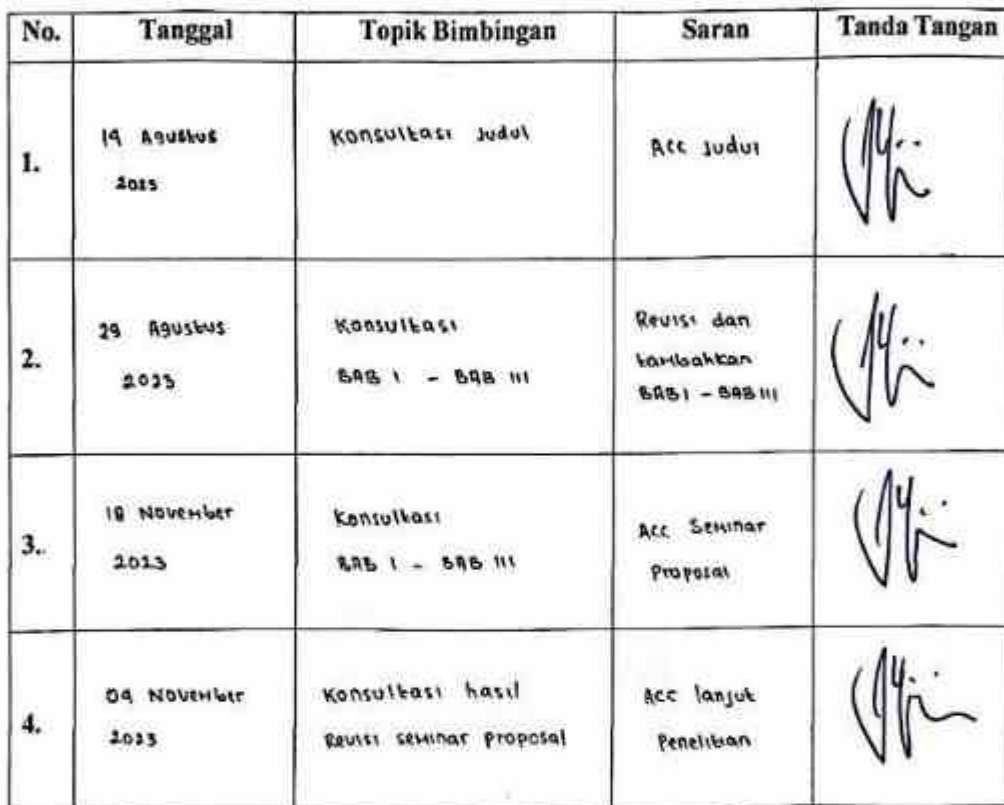 No. Tanggal Topik Bimbingan Saran Tanda Tangan
1. 19 Agustus 2023 Konsultasi Judul Acc Judul
2. 29 Agustus 2023 Konsultasi BAB I - BAB III Revisi dan tambahkan BAB I - BAB III
3. 18 November 2023 Konsultasi BAB I - BAB III Acc Seminar Proposal
4. 09 November 2023 Konsultasi hasil Revisi seminar proposal Acc lanjut Penelitian